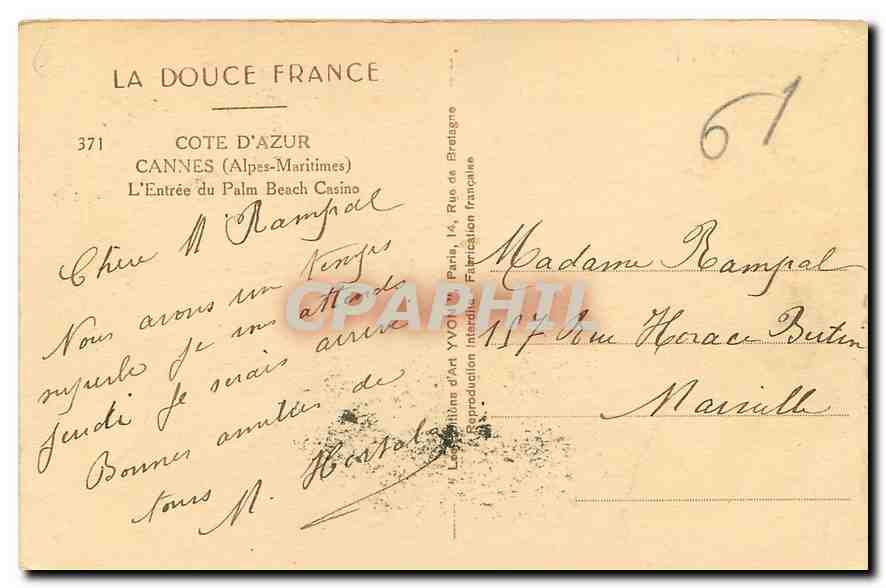 LA DOUCE FRANCE
371 COTE D'AZUR
CANNES (Alpes-Maritimes)
L'Entrée du Palm Beach Casino
Chère M Rampal
Nous avons un temps
superbe je vous attends
jeudi je serais arrivé
Bonnes amitiés de
tous M. Hortola
"Les Editions d'Art YVON" Paris, 14, Rue de Bretagne
Reproduction Interdite - Fabrication française
61
Madame Rampal
157 Rue Horace Bertin
Marseille
CPAPHIL